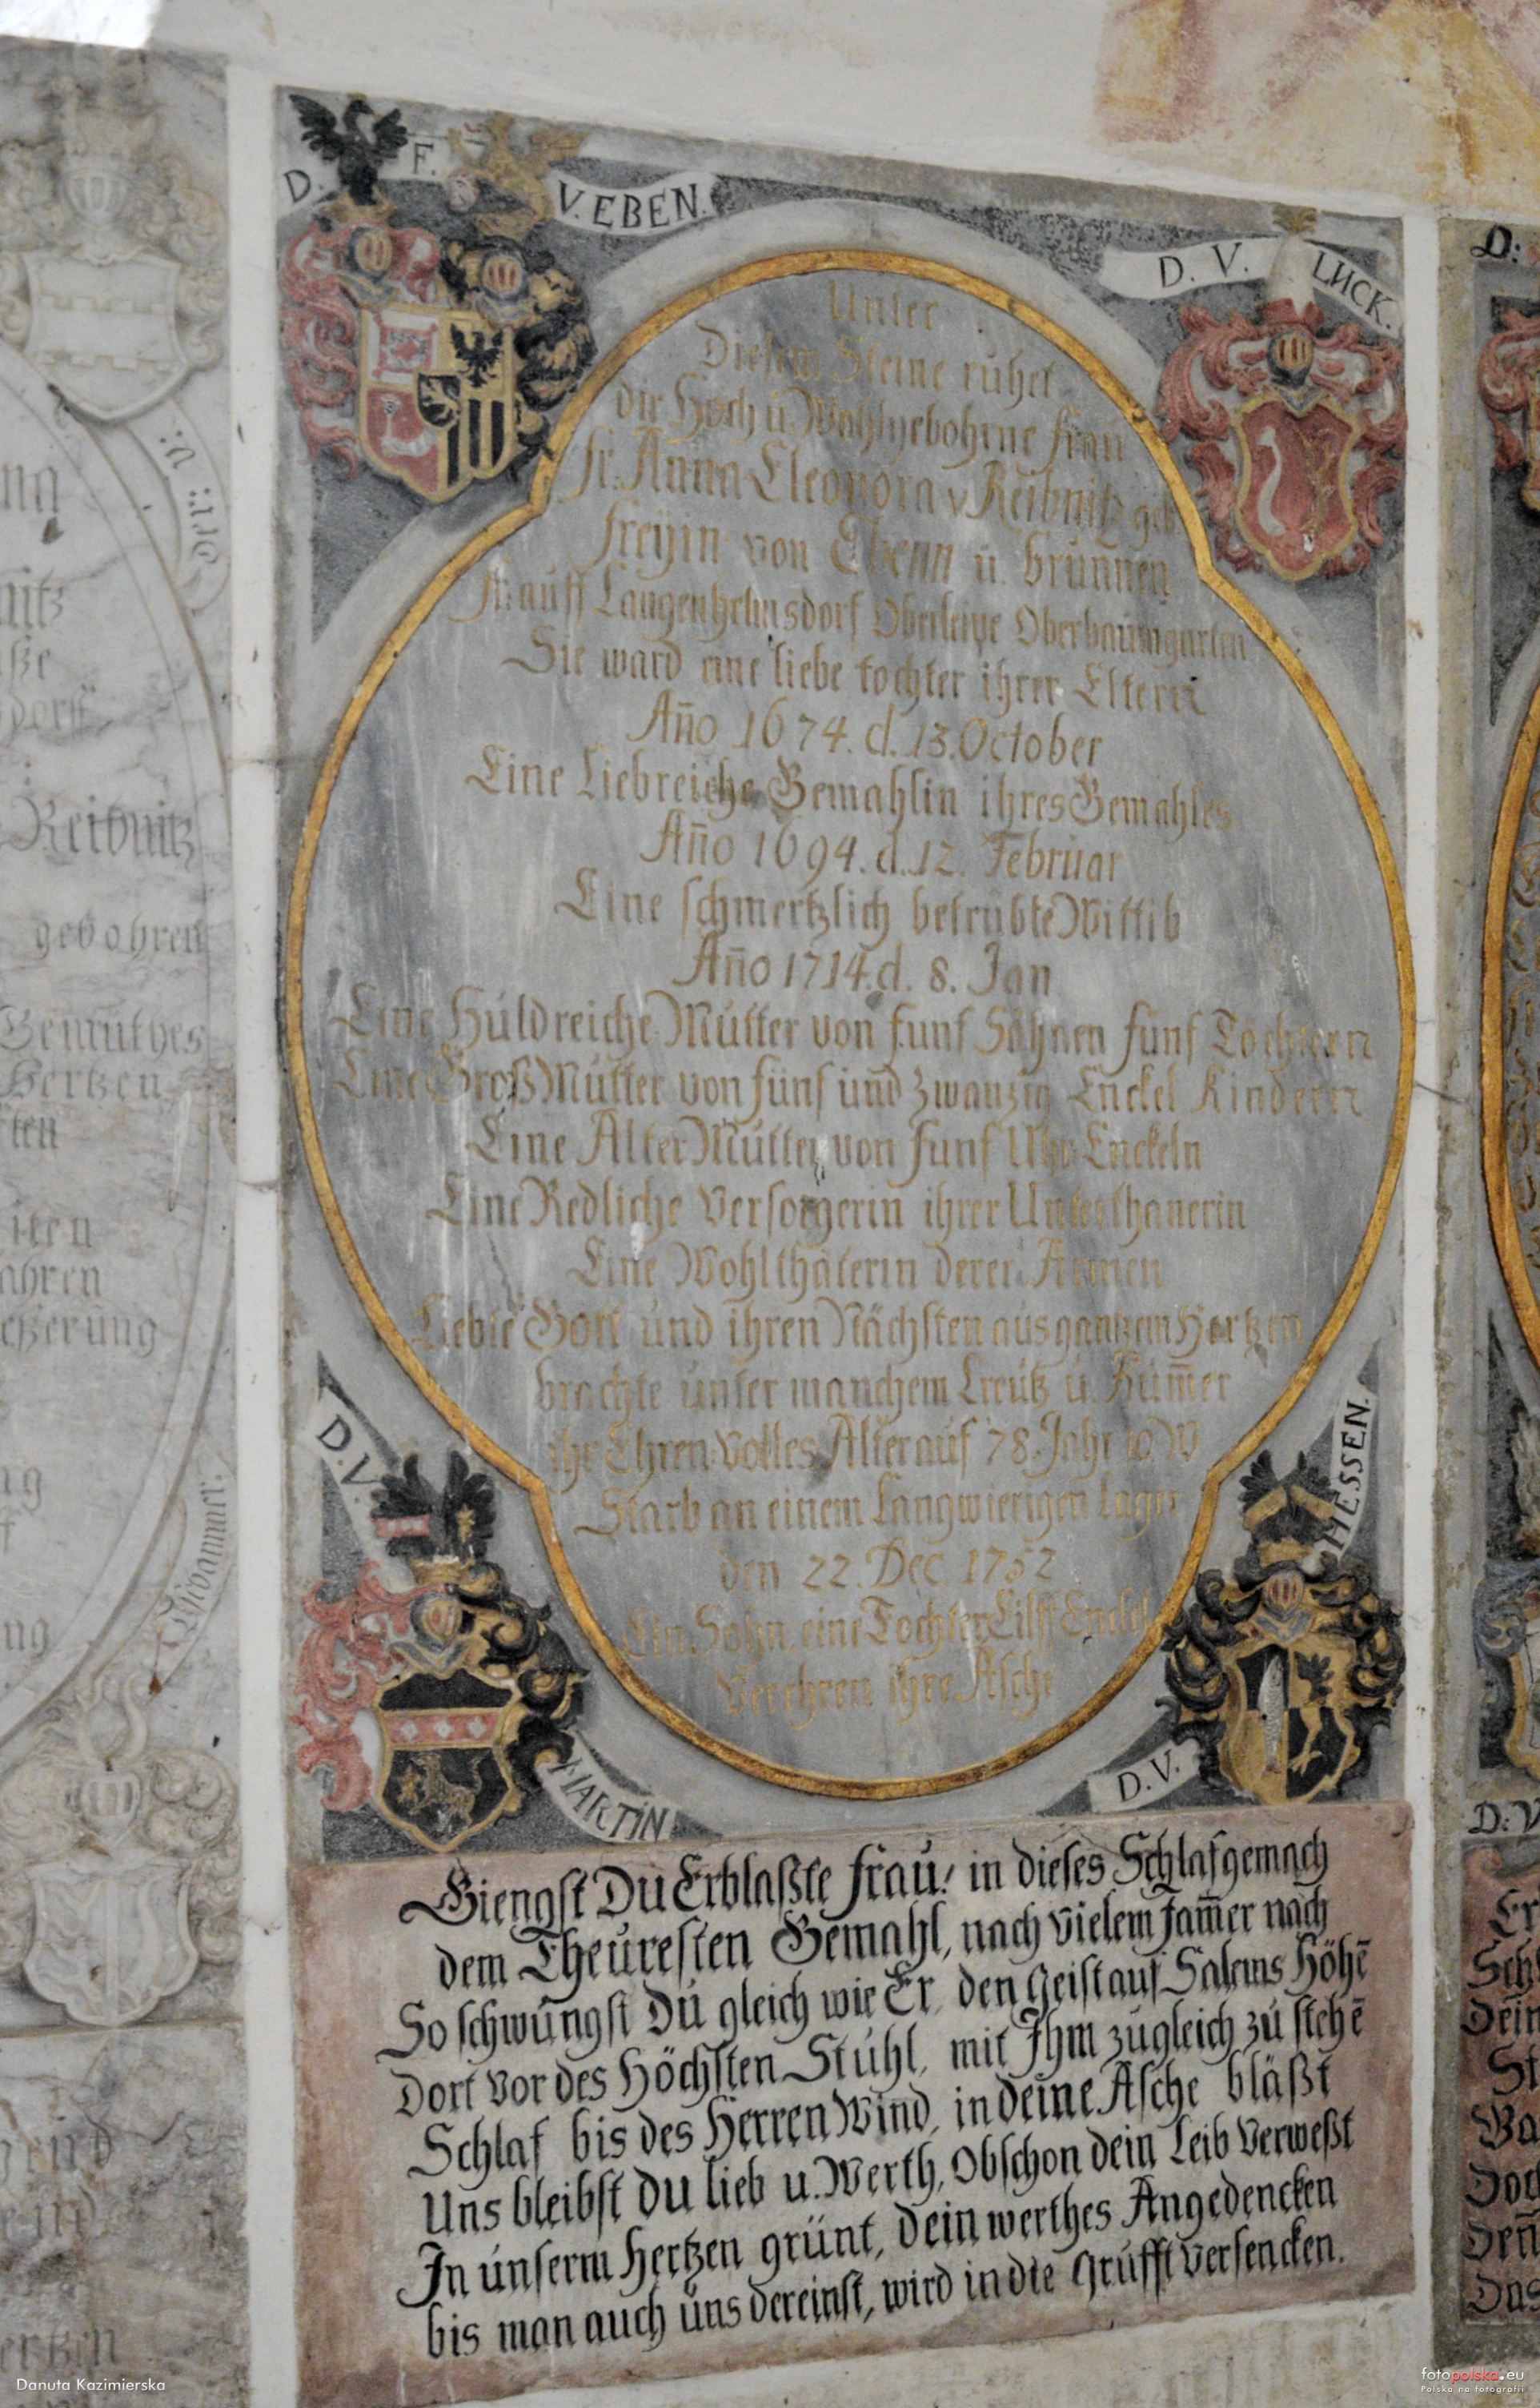 D. F. V. EBEN.
D. V. LUCK.
Unter
Diesem Steine ruhet
die Hoch u Wohlgebohrne Frau
Fr. Anna Eleonora v Reibnitz geb
Freyin von Ebenn ü. Brunnen
Fr: auff Langenhelmsdorf Oberleipe Oberbaumgarten
Sie ward eine liebe tochter ihrer Eltern
Año 1674. d. 13. October
Eine Liebreiche Gemahlin ihres Gemahles
Año 1694. d. 12. Februar
Eine schmertzlich betrubte Wittib
Año 1714. d. 8. Jan
Eine Huldreiche Mutter von funf Söhnen funf Töchtern
Eine Groß Mutter von funf und zwanzig Enckel Kindern
Eine Alter Mutter von funf Enckeln
Eine Redliche Versorgerin ihrer Unterthanerin
Eine Wohlthäterin derer Armen
Liebte Gott und ihren Nächsten aus gantzem Hertzen
brachte unter manchem Creutz u. Kum̄er
ihr Ehren-volles Alter auf 78. Jahr 10 W
Starb an einem Langwierigen Lager
den 22. Dec. 1752
Ein Sohn eine Tochter Eilff Enckel
Verehren ihre Asche
D. V. MARTIN
D. V. HESSEN.
Giengst Du Erblaßte Frau! in dieses Schlafgemach
dem Theuresten Gemahl, nach vielem Jam̄er nach
So schwungst Du gleich wie Er, den Geist auf Salems Höhē
Dort vor des Höchsten Stuhl, mit Ihm zugleich zu stehē
Schlaf bis des Herren Wind, in deine Asche bläßt
Uns bleibst du lieb u. Werth, Obschon dein Leib Verweßt
In unserm Hertzen grünt, Dein werthes Angedencken
bis man auch uns dereinst, wird in die Grufft versencken.
Reibnitz
gebohren
Gemuthes
Hertzen
D:
D: V
Danuta Kazimierska
fotopolska.eu
Polska na fotografii